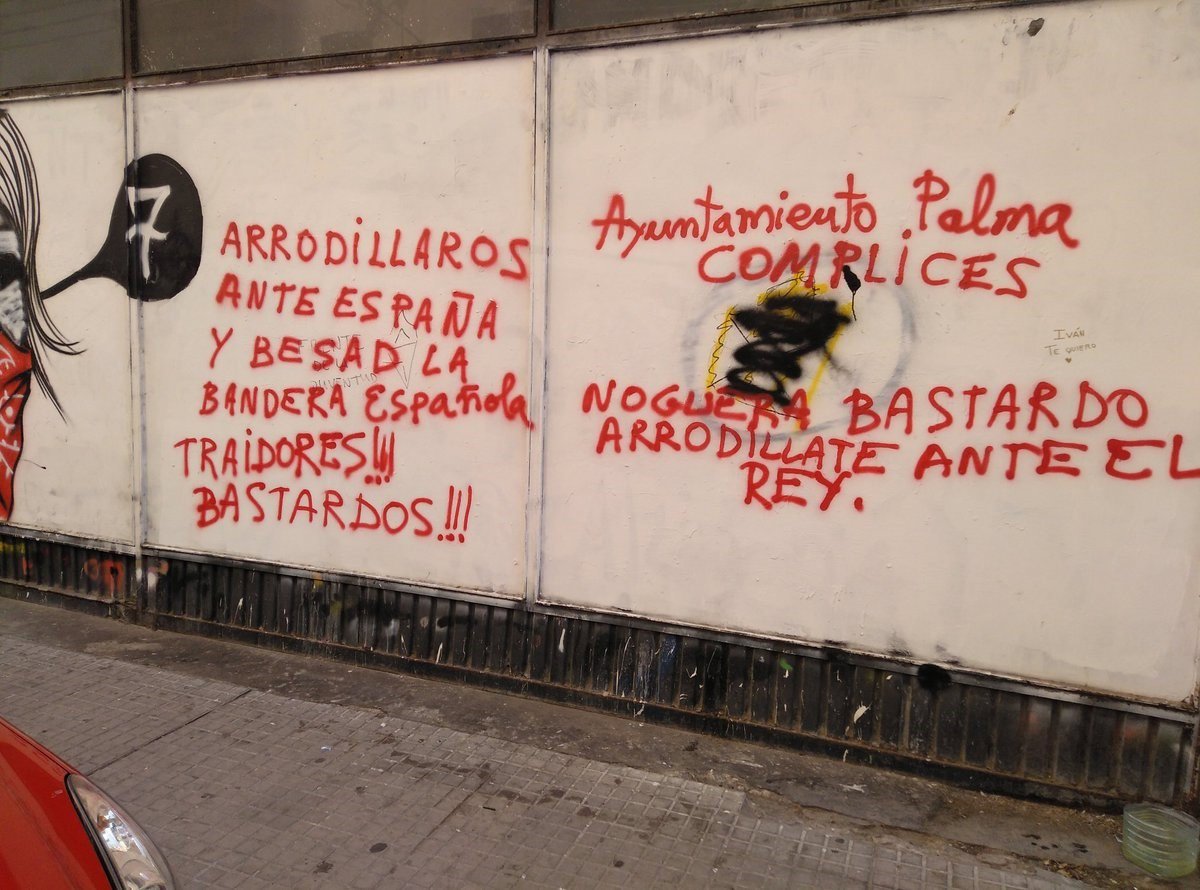 7
ARRODILLAROS
ANTE ESPAÑA
Y BESAD LA
BANDERA Española
TRAIDORES!!!
BASTARDOS!!!
Ayuntamiento Palma
COMPLICES
NOGUERA BASTARDO
ARRODILLATE ANTE EL
REY.
IVÁN
TE QUIERO